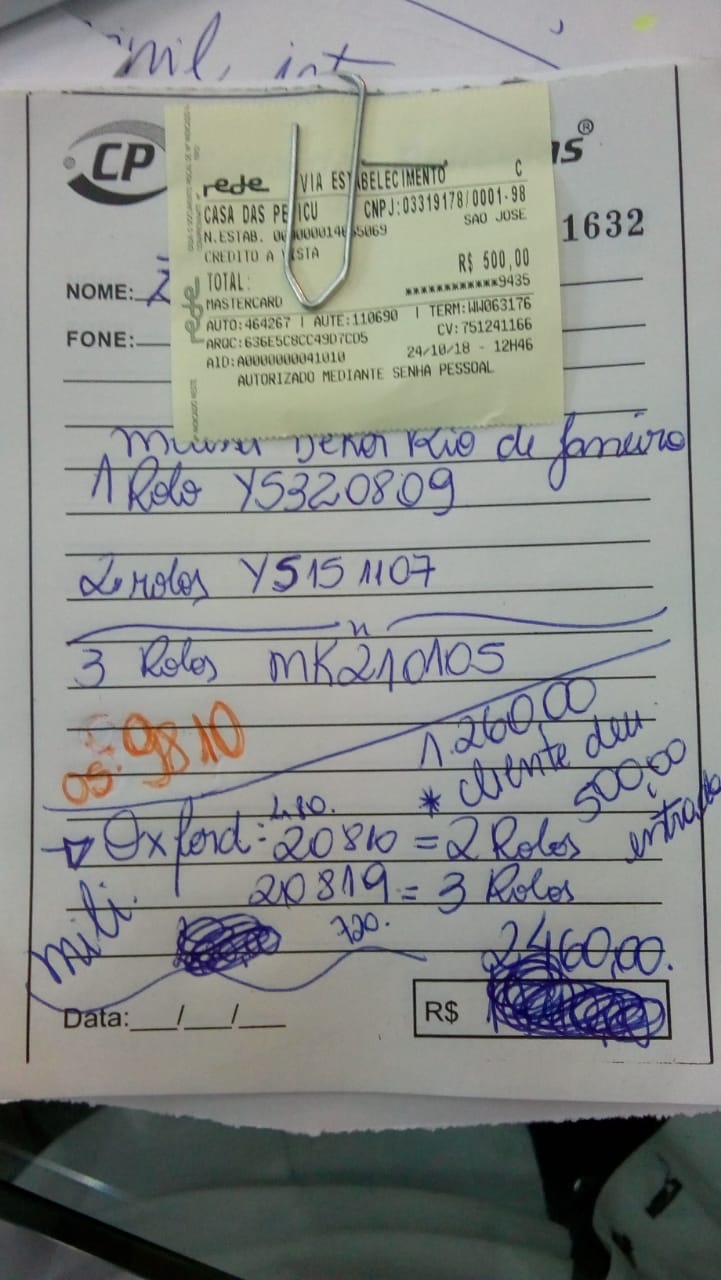 mil, int
CP
®
rede VIA ESTABELECIMENTO C
CASA DAS PE ICU CNPJ:03319178/0001-98
N.ESTAB. SAO JOSE
CREDITO A VISTA
R$ 500,00
TOTAL:
************9435
MASTERCARD
AUTO:464267 | AUTE:110690 | TERM:WW063176
ARQC:636E5C8CC49D7CD5 CV:751241166
AID:A0000000041010 24/10/18 - 12H46
AUTORIZADO MEDIANTE SENHA PESSOAL
rede
1632
NOME:
FONE:
Rio de Janeiro
1 Rolo YS320809
2 rolos YS151107
3 Rolos MK210105
05. 9810
1.260,00
* cliente deu
500,00
entrada
480.
Oxford: 20810 = 2 Rolos
20819 = 3 Rolos
mili.
720.
2460,00.
Data:___/___/___
R$